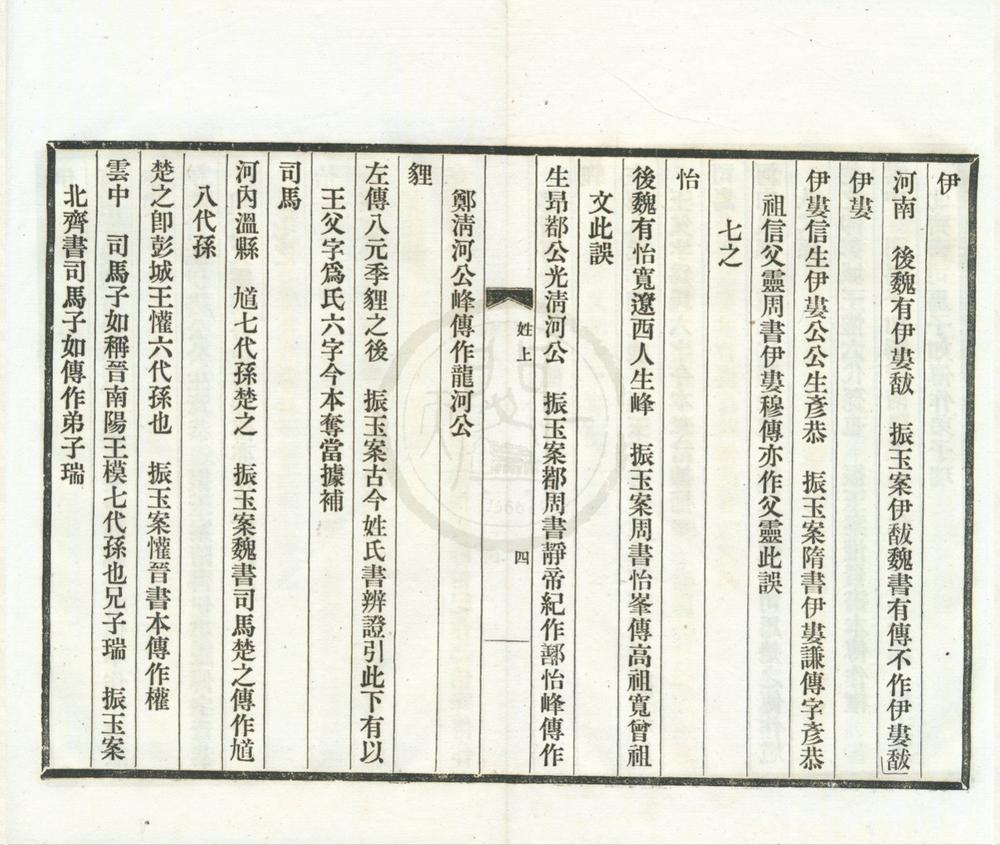 伊
河南　後魏有伊婁馛　振玉案伊馛魏書有傳不作伊婁馛
伊婁
伊婁信生伊婁公公生彥恭　振玉案隋書伊婁謙傳字彥恭
祖信父靈周書伊婁穆傳亦作父靈此誤
七之
怡
後魏有怡寬遼西人生峰　振玉案周書怡峯傳高祖寬曾祖
文此誤
生昂鄀公光淸河公　振玉案鄀周書靜帝紀作鄯怡峰傳作
姓上
四
鄭淸河公峰傳作龍河公
貍
左傳八元季貍之後　振玉案古今姓氏書辨證引此下有以
王父字爲氏六字今本奪當據補
司馬
河內溫縣　馗七代孫楚之　振玉案魏書司馬楚之傳作馗
八代孫
楚之卽彭城王懽六代孫也　振玉案懽晉書本傳作權
雲中　司馬子如稱晉南陽王模七代孫也兄子瑞　振玉案
北齊書司馬子如傳作弟子瑞